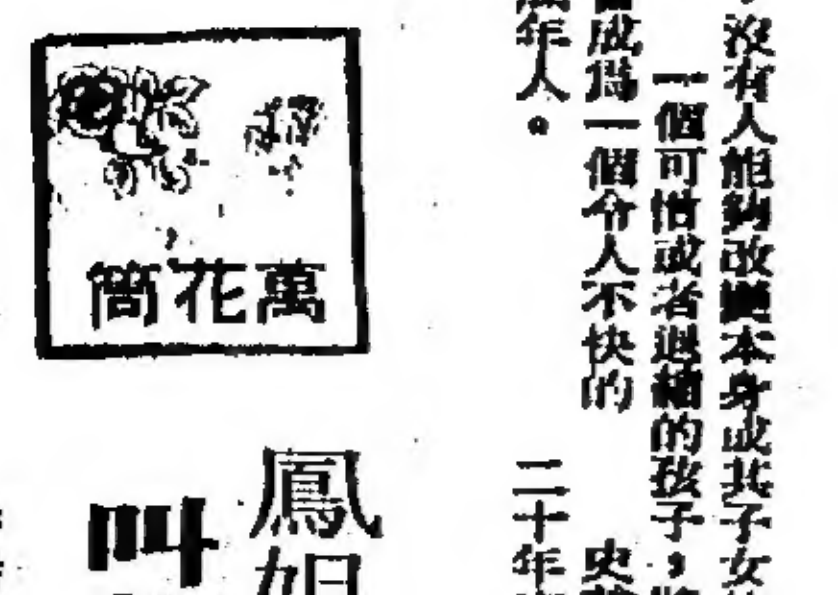 ，沒有人能夠改變本身或其子女
一個可惜或者退縮的孩子，將
成爲一個令人不快的
史
年人。
二十年
萬花筒
鳳姐
叫